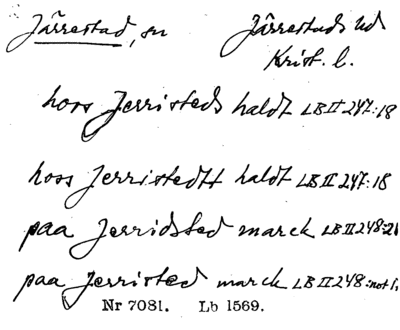 Järrestad, sn Järrestads hd
Krist. l.
hoss Jerristeds haldt LB II 247:18
hoss Jerristedtt haldt LB II 247:18
paa Jerridsted marck LB II 248:21
paa Jerristed marck LB II 248:not 1,
Nr 7081. Lb 1569.